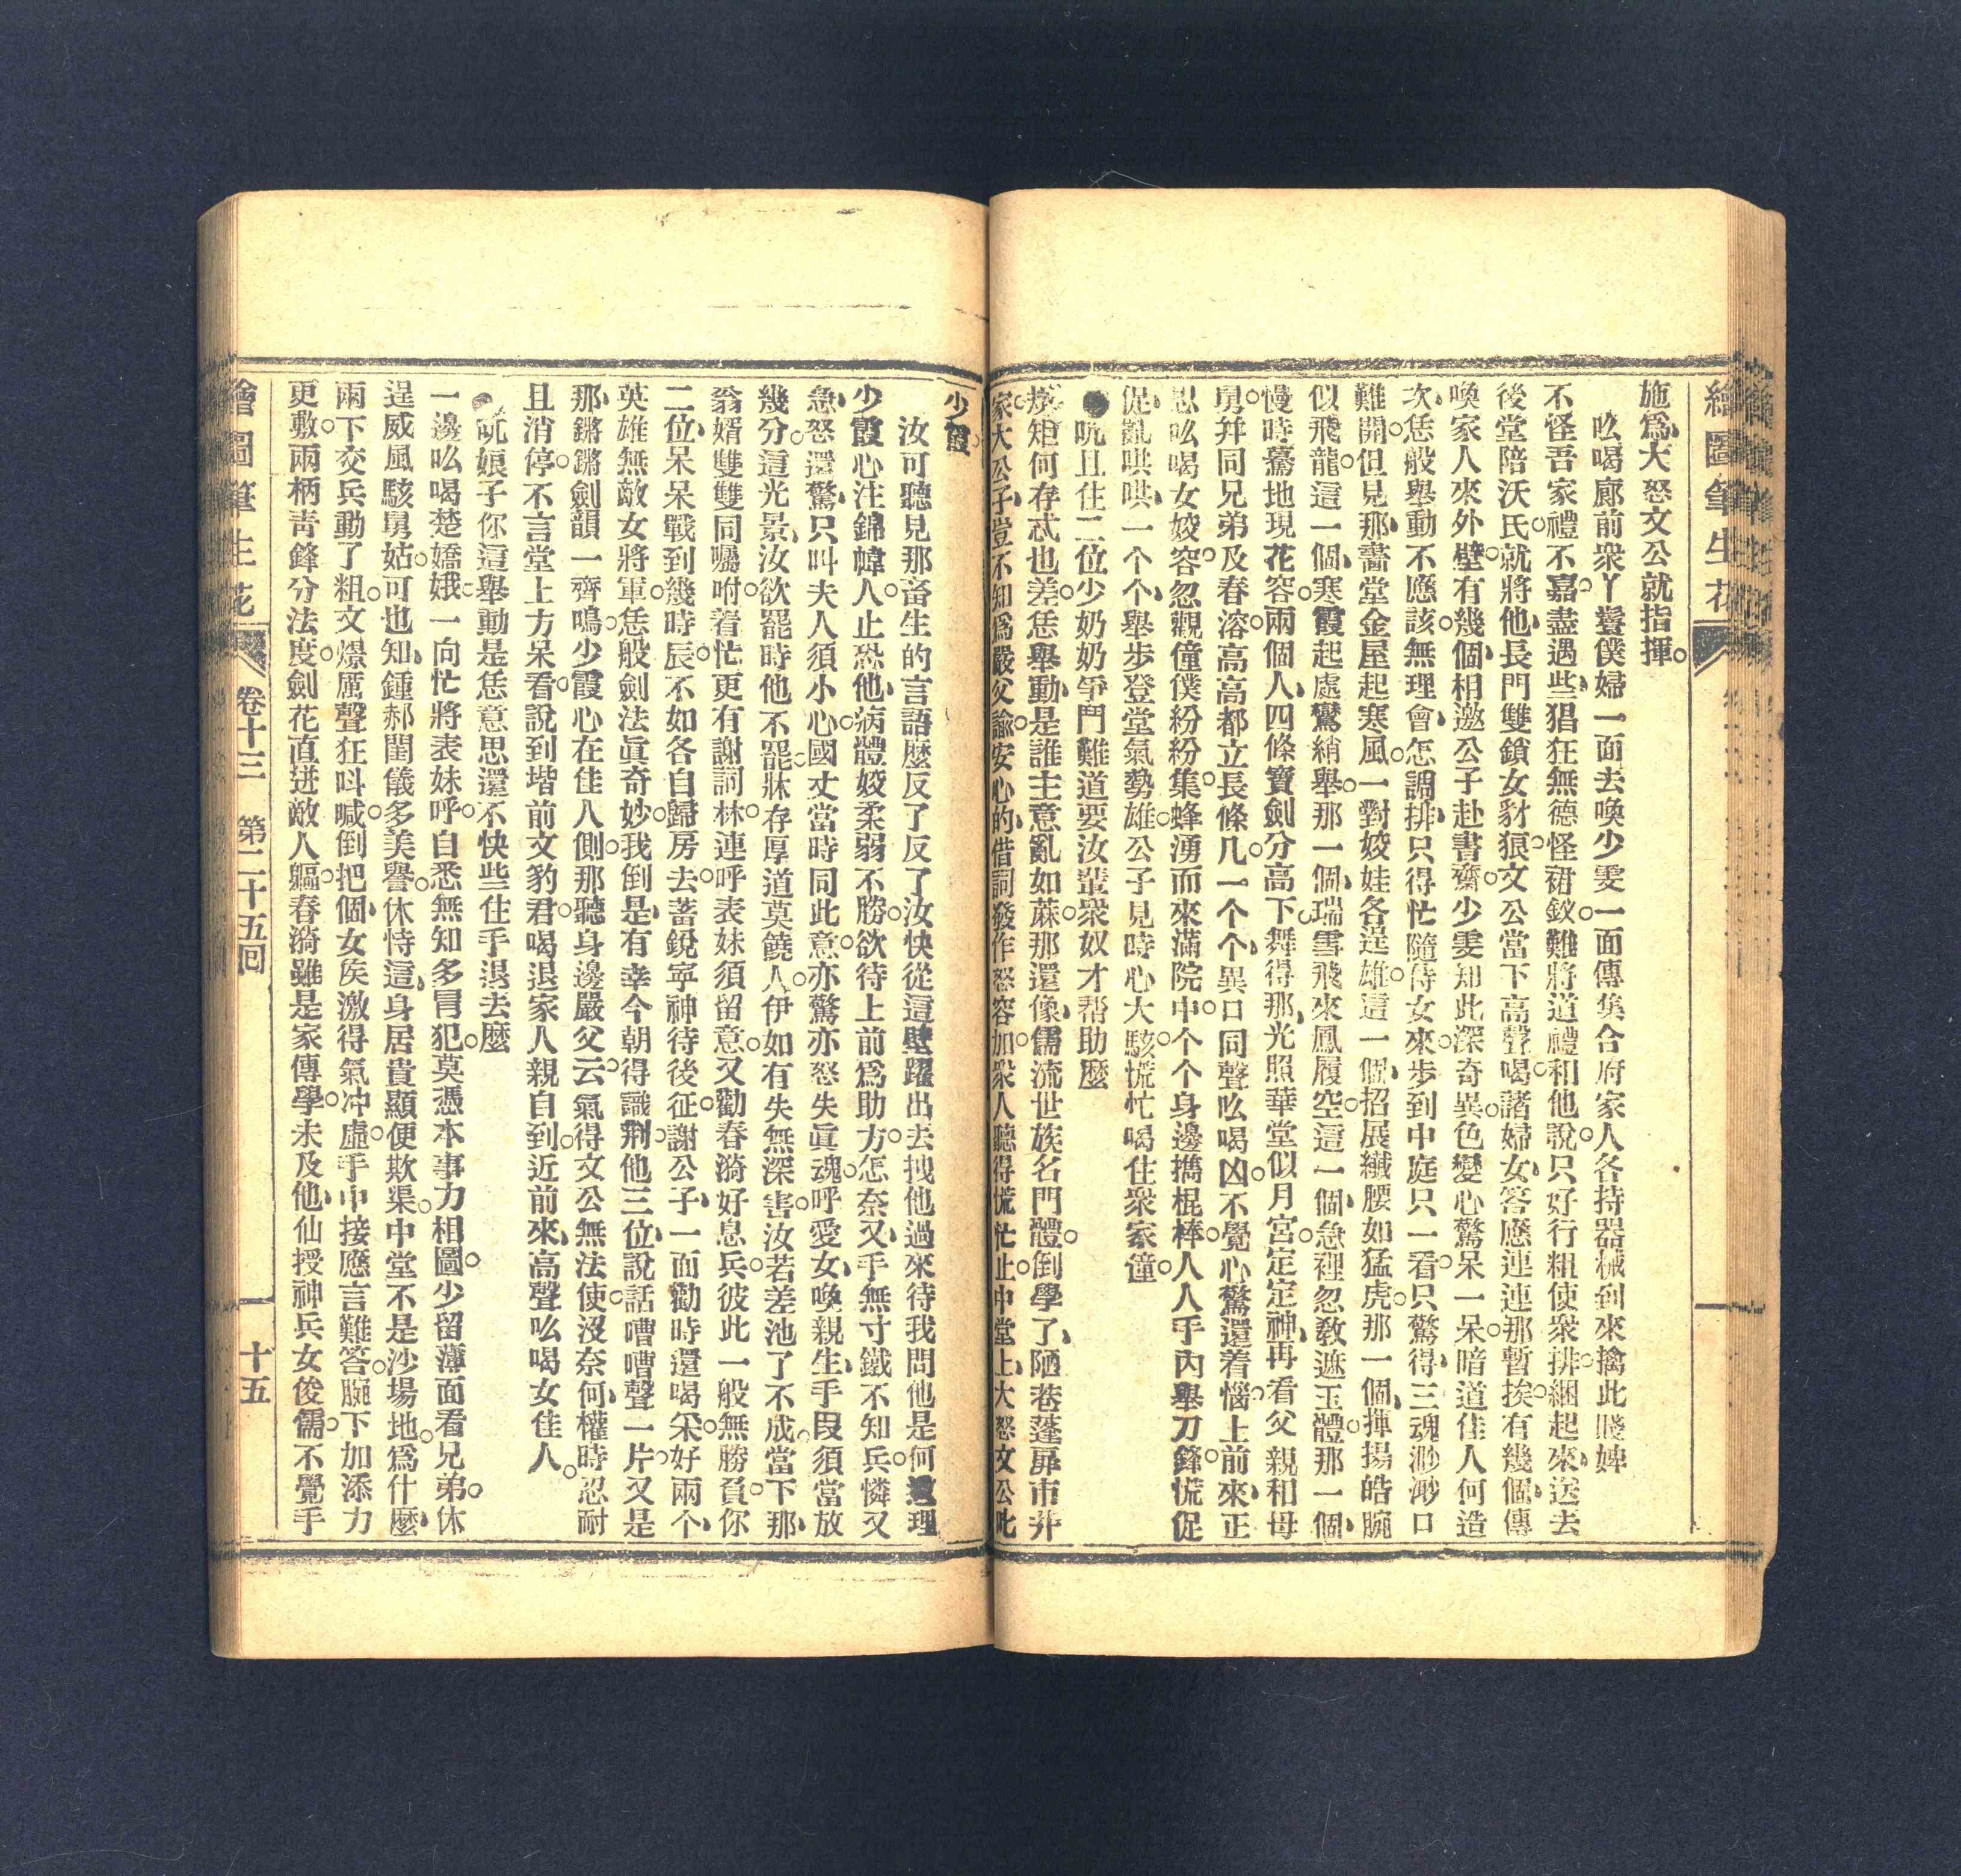 繪圖筆生花
施爲大怒文公就指揮。
吆喝廊前衆丫鬟僕婦一面去喚少雯一面傳集合府家人各持器械到來擒此賤婢
不怪吾家禮不嘉。盡遇些猖狂無德怪裙釵。難將道禮和他說。只好行粗使衆排。綑起來送去
後堂陪沃氏。就將他長門雙鎖女豺狼。文公當下高聲喝。諸婦女答應連連那暫挨。有幾個傳
喚家人來外壁。有幾個相邀公子赴書齋。少雯知此深奇異。色變心驚呆一呆。暗道佳人何造
次。恁般舉動不應該。無理會怎調排。只得忙隨侍女來。步到中庭只一看。只驚得三魂渺渺口
難開。但見那畵堂金屋起寒風。一對姣娃各逞雄。這一個招展纖腰如猛虎。那一個揮揚皓腕
似飛龍。這一個寒霞起處鸞綃舉。那一個瑞雪飛來鳳履空。這一個急裡忽教遮玉體。那一個
慢時驀地現花容。兩個人四條寶劍分高下。舞得那光照華堂似月宮。定定神再看父親和母
舅。幷同兄弟及春溶。高高都立長條几。一个个異口同聲吆喝凶。不覺心驚還着惱。上前來正
思吆喝女姣容。忽觀僮僕紛紛集。蜂湧而來滿院中。个个身邊擕棍棒。人人手內舉刀鋒。慌促
促亂哄哄一个个舉步登堂氣勢雄。公子見時心大駭。慌忙喝住衆家僮。
吭且住二位少奶奶爭鬥難道要汝輩衆奴才帮助麼
規矩何存忒也差。恁舉動是誰主意亂如蔴。那還像儒流世族名門體。倒學了陋巷蓬扉市井
家。大公子豈不知爲嚴父諭。安心的借詞發作怒容加。衆人聽得慌忙止。中堂上大怒文公叱
少霞。
汝可聽見那畜生的言語麼反了反了汝快從這壁躍出去拽他過來待我問他是何道理
少霞心注錦幃人。止恐他病體姣柔弱不勝。欲待上前爲助方。怎奈又手無寸鐵不知兵。憐又
急怒還驚。只叫夫人須小心。國丈當時同此意。亦驚亦怒失眞魂。呼愛女喚親生。手段須當放
幾分。這光景汝欲罷時他不罷。牀存厚道莫饒人。伊如有失無深害。汝若差池了不成。當下那
翁婿雙雙同囑咐。着忙更有謝詞林。連呼表妹須留意。又勸春漪好息兵。彼此一般無勝負。你
二位呆呆戰到幾時辰。不如各自歸房去。蓄銳寧神待後征。謝公子一面勸時還喝采。好兩个
英雄無敵女將軍。恁般劍法眞奇妙。我倒是有幸今朝得識荆。他三位說話嘈嘈聲一片。又是
那鏘鏘劍韻一齊鳴。少霞心在佳人側。那聽身邊嚴父云。氣得文公無法使。沒奈何權時忍耐
且消停。不言堂上方呆看。說到堦前文豹君。喝退家人親自到。近前來高聲吆喝女佳人。
吭娘子你這舉動是恁意思還不快些住手退去麼
一邊吆喝楚嬌娥。一向忙將表妹呼。自悉無知多冒犯。莫憑本事力相圖。少留薄面看兄弟。休
逞威風駭舅姑。可也知鍾郝閨儀多美譽。休恃這身居貴顯便欺渠。中堂不是沙塲地。爲什麼
兩下交兵動了粗。文燝厲聲狂呌喊。倒把個女矦激得氣冲虛。手中接應言難答。腕下加添力
更敷。兩柄靑鋒分法度。劍花直迸敵人軀。春漪雖是家傳學。未及他仙授神兵女俊儒。不覺手
繪圖筆生花 卷十三 第二十五回 十五